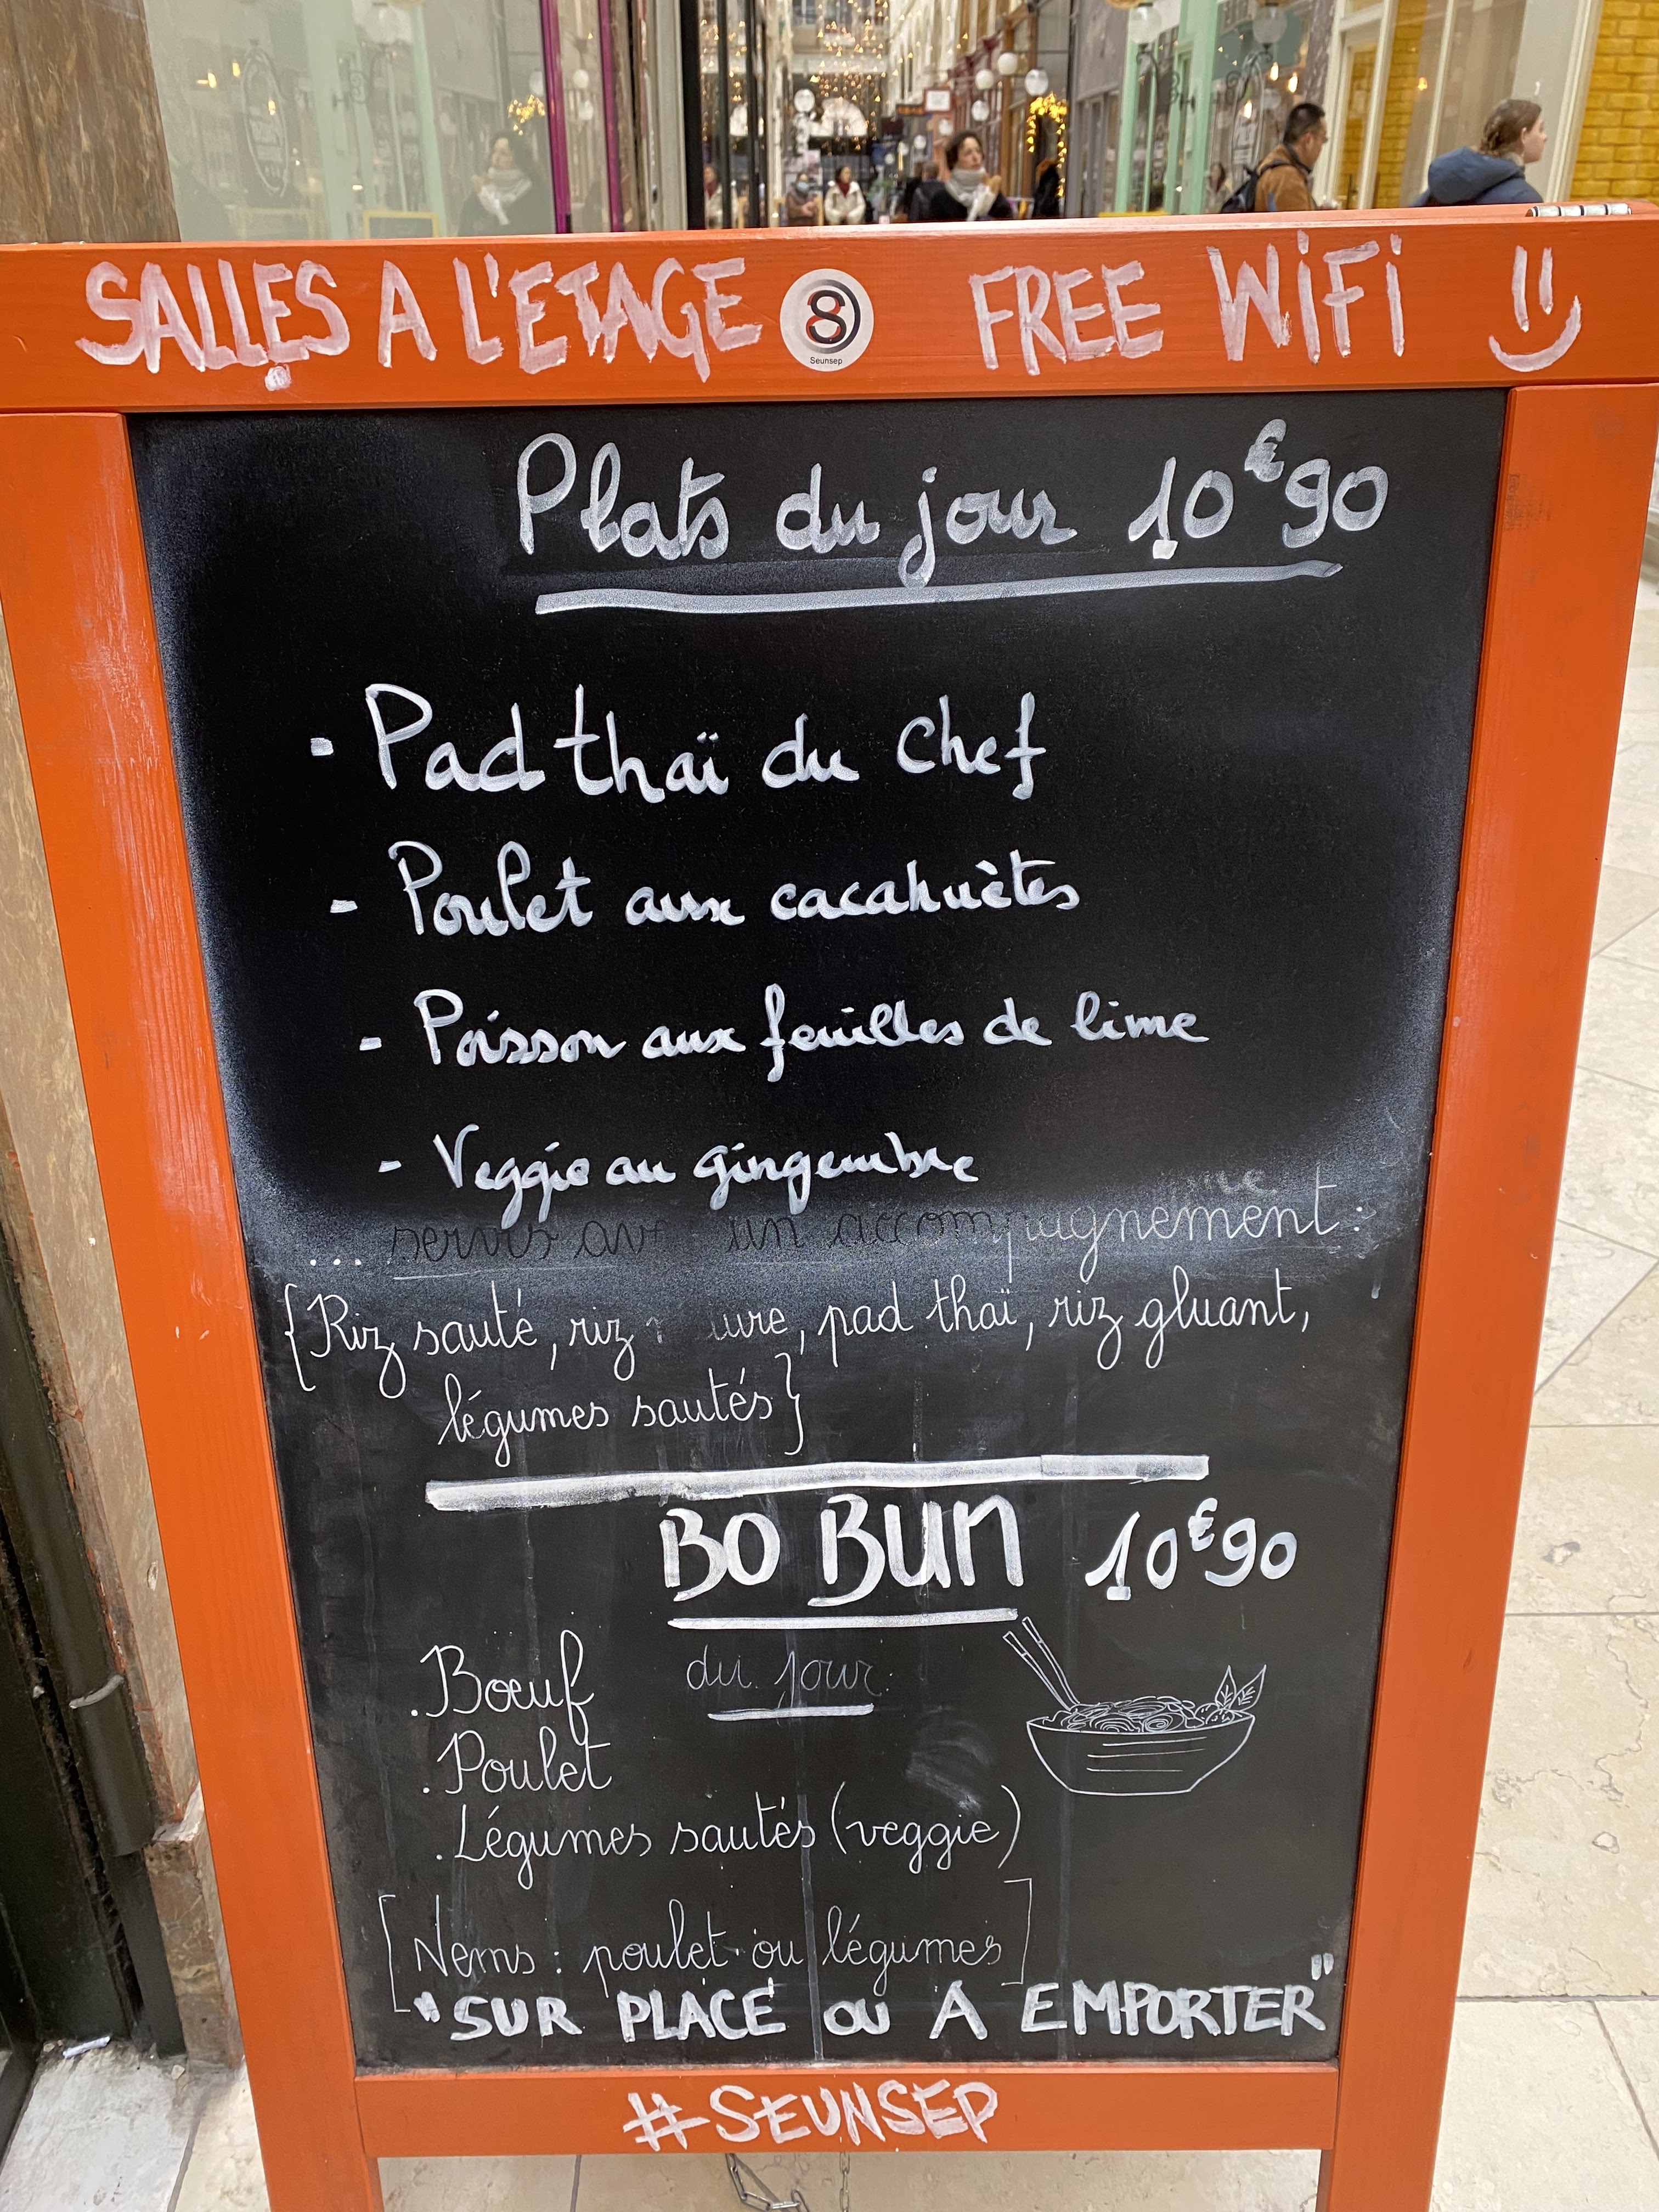 SALLES A L'ETAGE 8 Seunsep FREE WiFi
Plats du jour 10€90
- Pad thaï du chef
- Poulet aux cacahuètes
- Poisson aux feuilles de lime
- Veggie au gingembre
... servis un accompagnement :
{Riz sauté, riz pad thaï, riz gluant,
légumes sautés}
BO BUN 10€90
du jour :
. Bœuf
. Poulet
. Légumes sautés (veggie)
[Nems : poulet ou légumes]
"SUR PLACE ou A EMPORTER"
#SEUNSEP